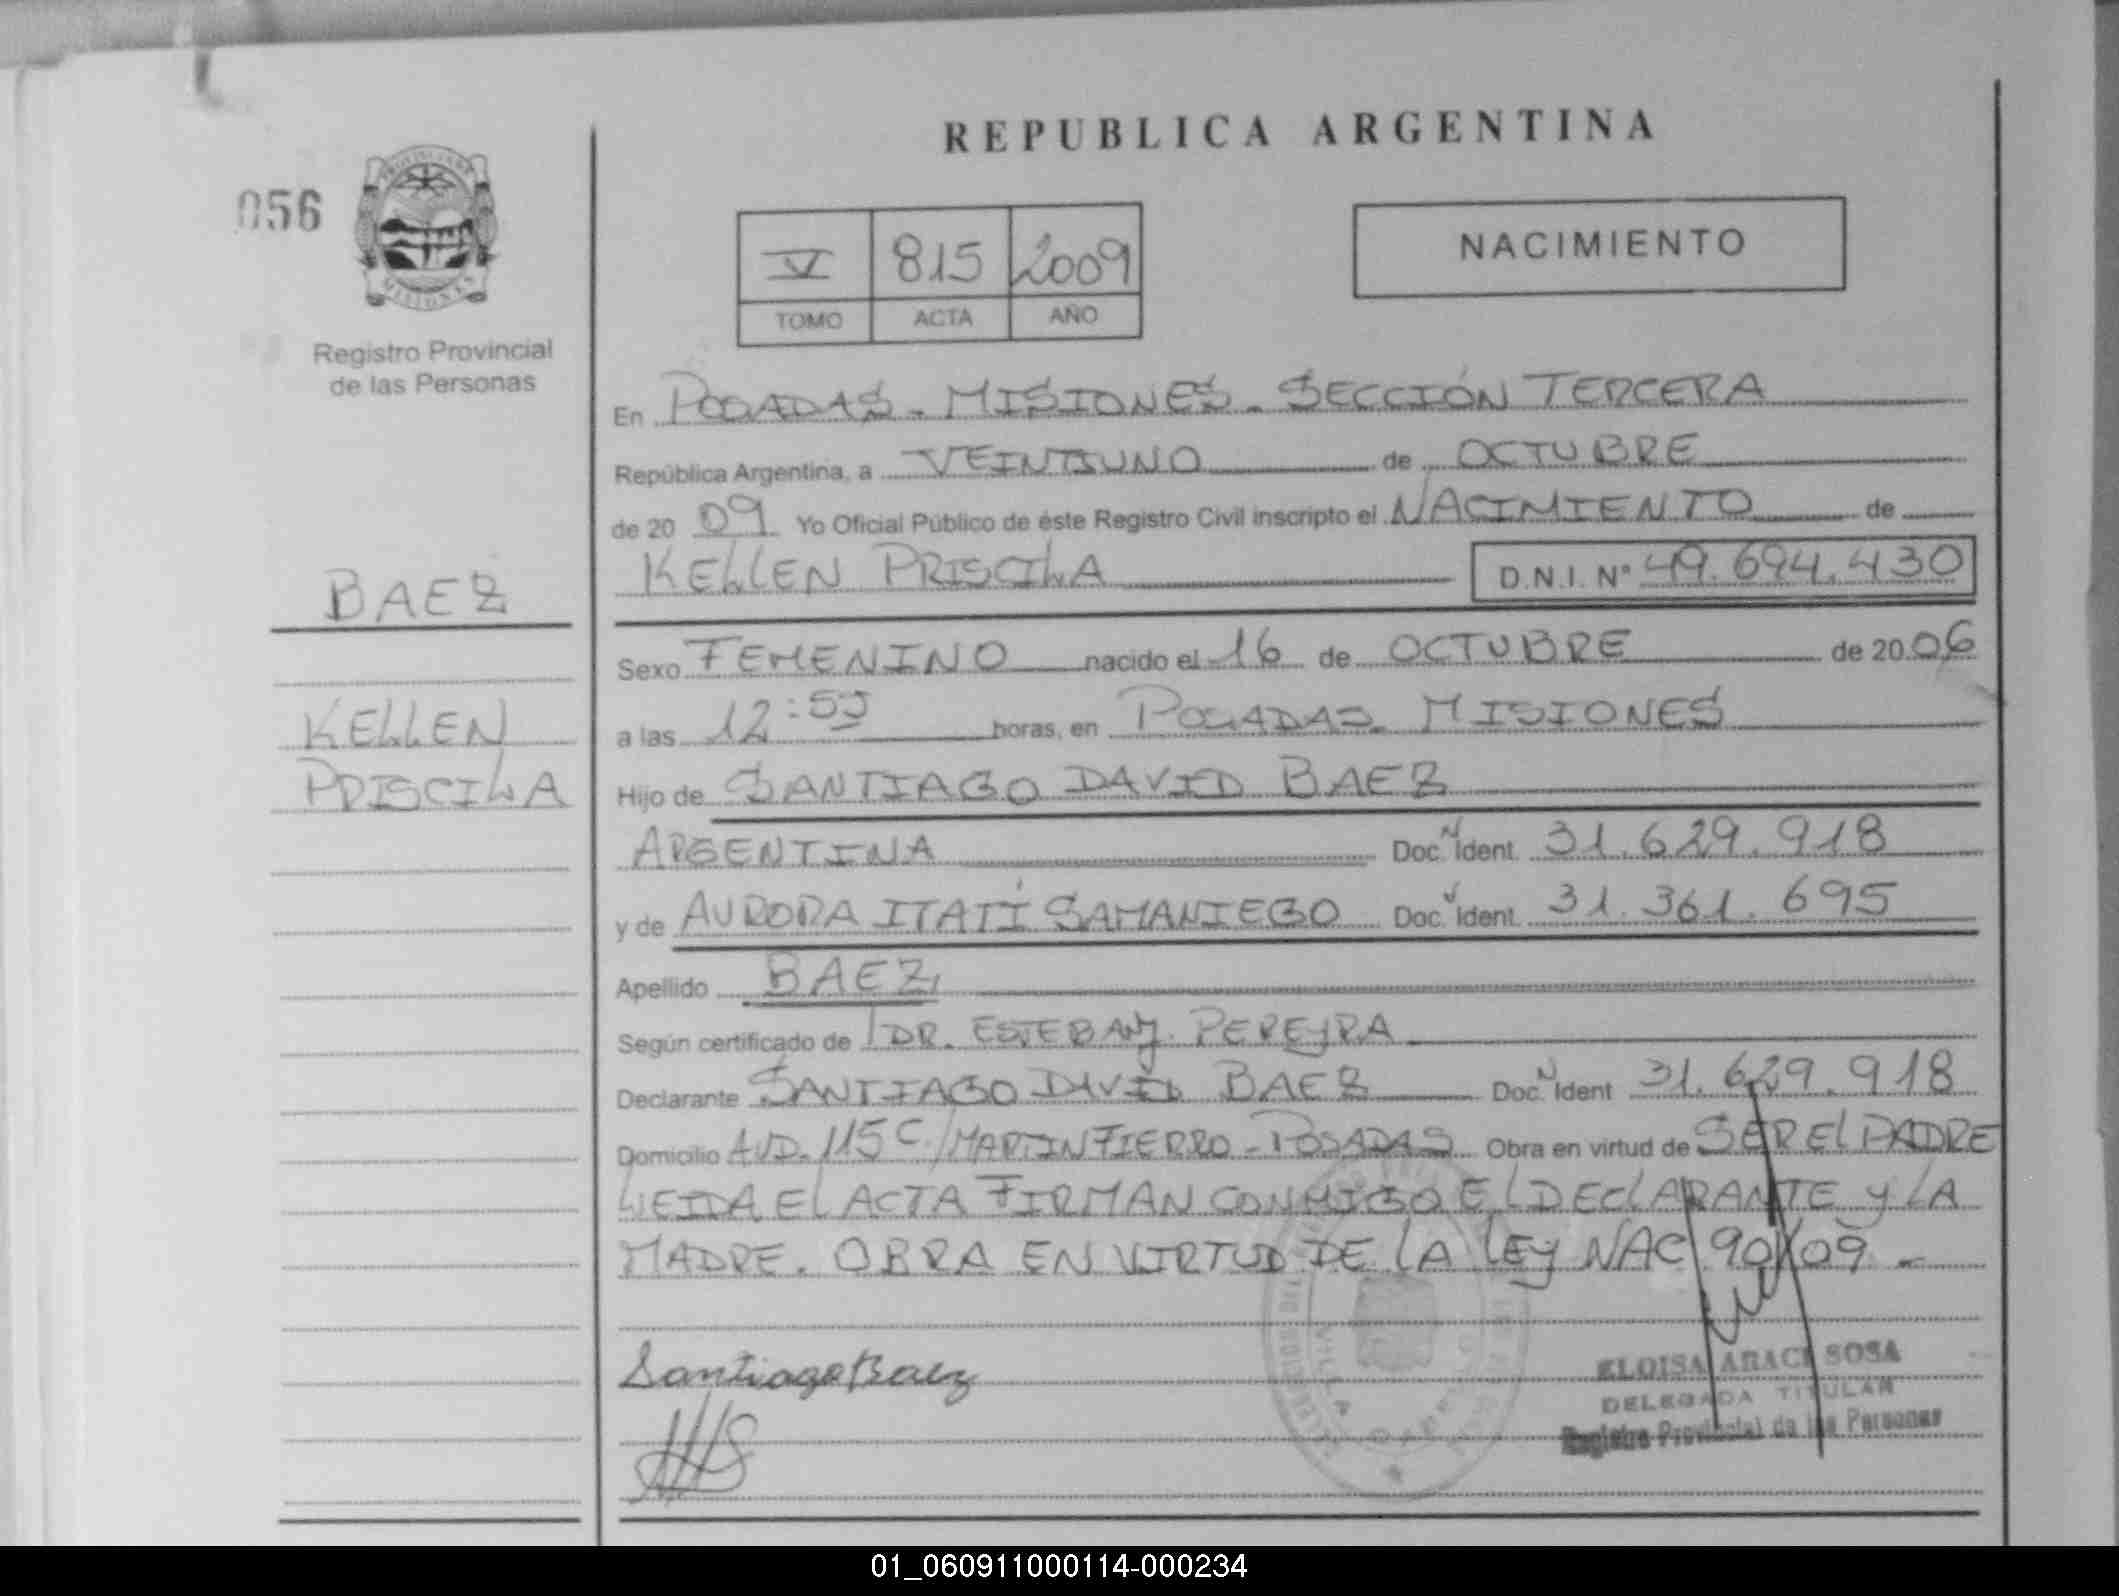 REPUBLICA ARGENTINA
056
PROVINCIA DE
MISIONES
Registro Provincial
de las Personas
V 815 2009
TOMO ACTA AÑO
NACIMIENTO
En POSADAS - MISIONES - SECCIÓN TERCERA
República Argentina, a VEINTIUNO de OCTUBRE
de 20 09 Yo Oficial Público de éste Registro Civil inscripto el NACIMIENTO de
KELLEN PRISCILA D.N.I. Nº 49.694.430
BAEZ
Sexo FEMENINO nacido el 16 de OCTUBRE de 20 06
KELLEN
a las 12:55 horas, en POSADAS MISIONES
PRISCILA
Hijo de SANTIAGO DAVID BAEZ
ARGENTINA Doc. N Ident. 31.629.918
y de AURORA ITATÍ SAMANIEGO Doc. Ident. 31.361.695
Apellido BAEZ
Según certificado de DR. ESTEBAN J. PEREYRA
Declarante SANTIAGO DAVID BAEZ Doc. N Ident 31.629.918
Domicilio AVD. 115 C/MARTIN FIERRO - POSADAS Obra en virtud de SER EL PADRE
LEIDA EL ACTA FIRMAN CONMIGO EL DECLARANTE Y LA
MADRE. OBRA EN VIRTUD DE LA LEY NAC 90/09 -
Santiago Baez
ELOISA ARACI SOSA
DELEGADA TITULAR
Registro Provincial de las Personas
01_060911000114-000234